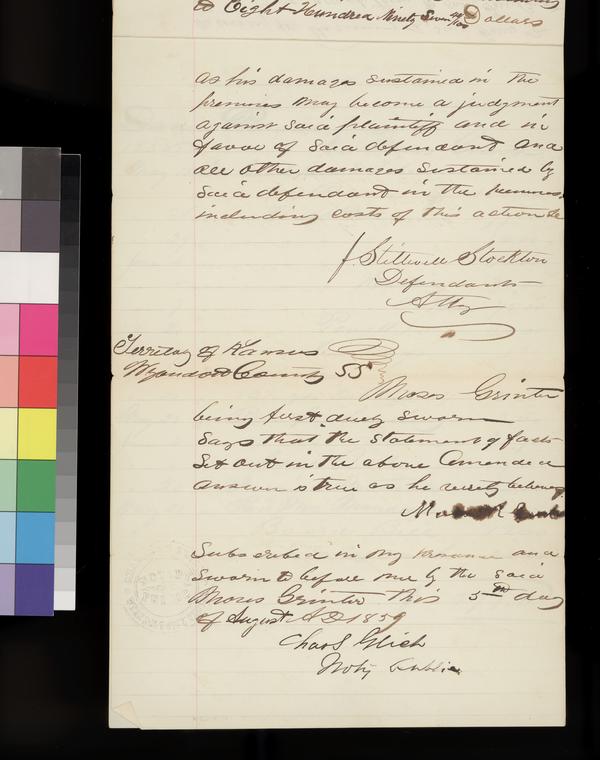 to Eight Hundred Ninety Seven 00/100 Dollars
as his damages sustained in the
premises may become a judgment
against said plaintiff and in
favor of said defendant and
all other damages sustained by
said defendant in the premises
including costs of this action &c
J Stillwell Stockton
Defendants
Atty
Territory of Kansas
Wyandott County SS
Moses Grinter
being first duly sworn
says that the statement of facts
set out in the above amended
answer is true as he verily believes
Subscribed in my presence and
sworn to before me by the said
Moses Grinter this 5th day
of August AD 1859
Chas S Glick
Noty Public